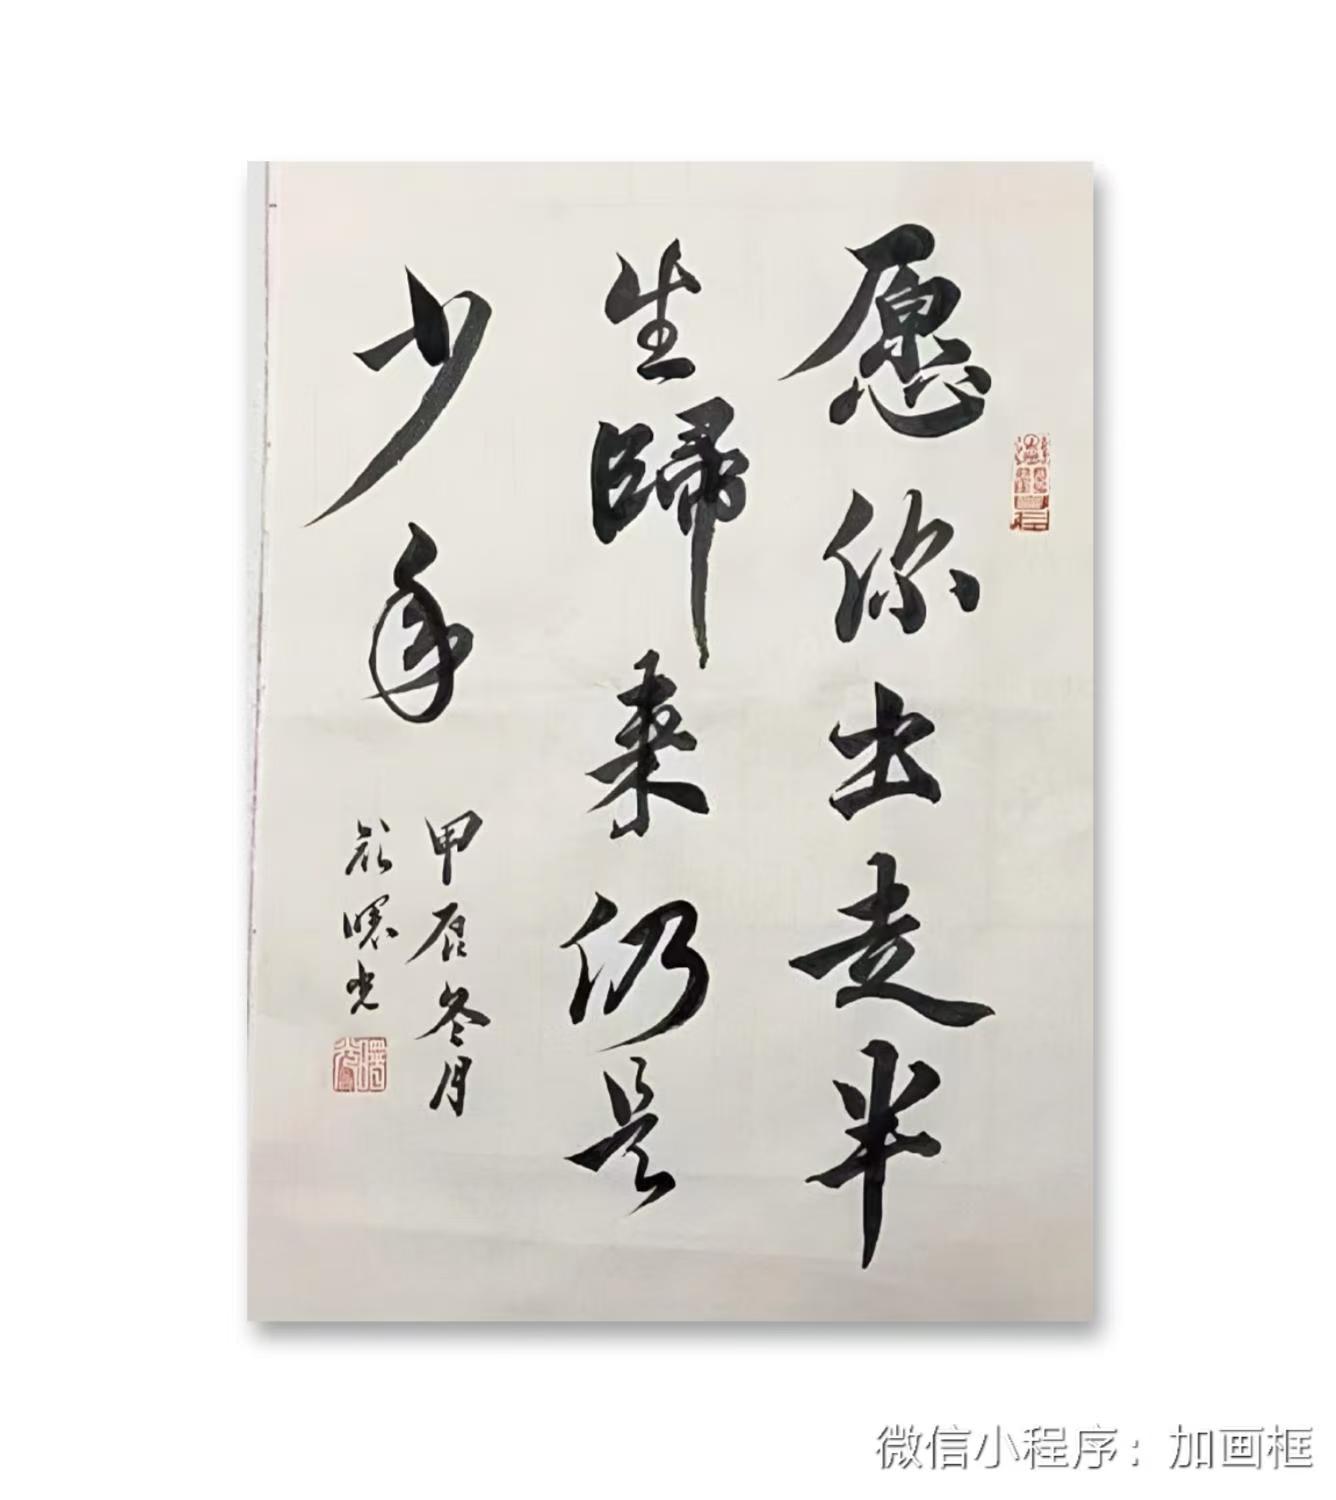 愿你出走半
生歸来仍是
少年
甲辰冬月
曙光
微信小程序：加画框